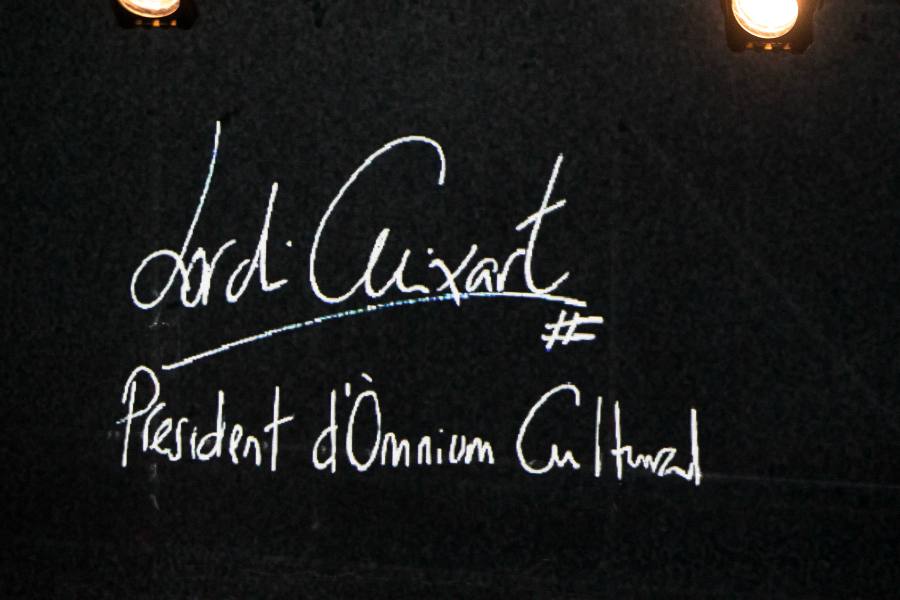 Jordi Cuixart
#
President d'Òmnium Cultural